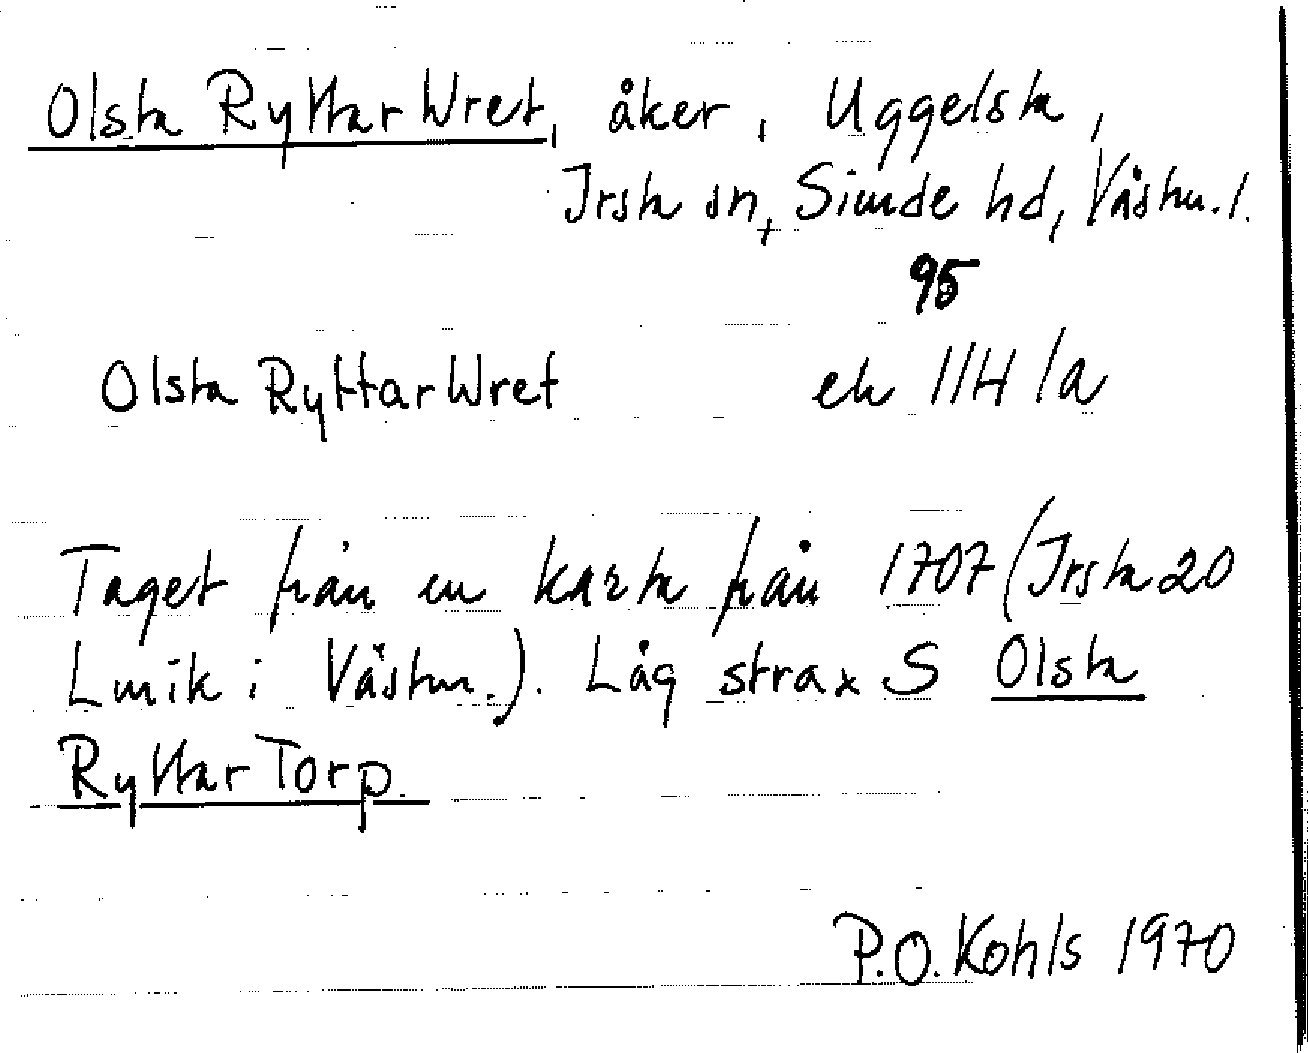 Olsta Ryttar Wret, åker, Uggelsta,
Irsta sn, Siende hd, Västm. l.
95
Olsta Ryttar Wret ek 11H 1a
Taget från en karta från 1707 (Irsta 20
Lmik i Västm.). Låg strax S Olsta
Ryttar Torp.
P.O. Kohls 1970